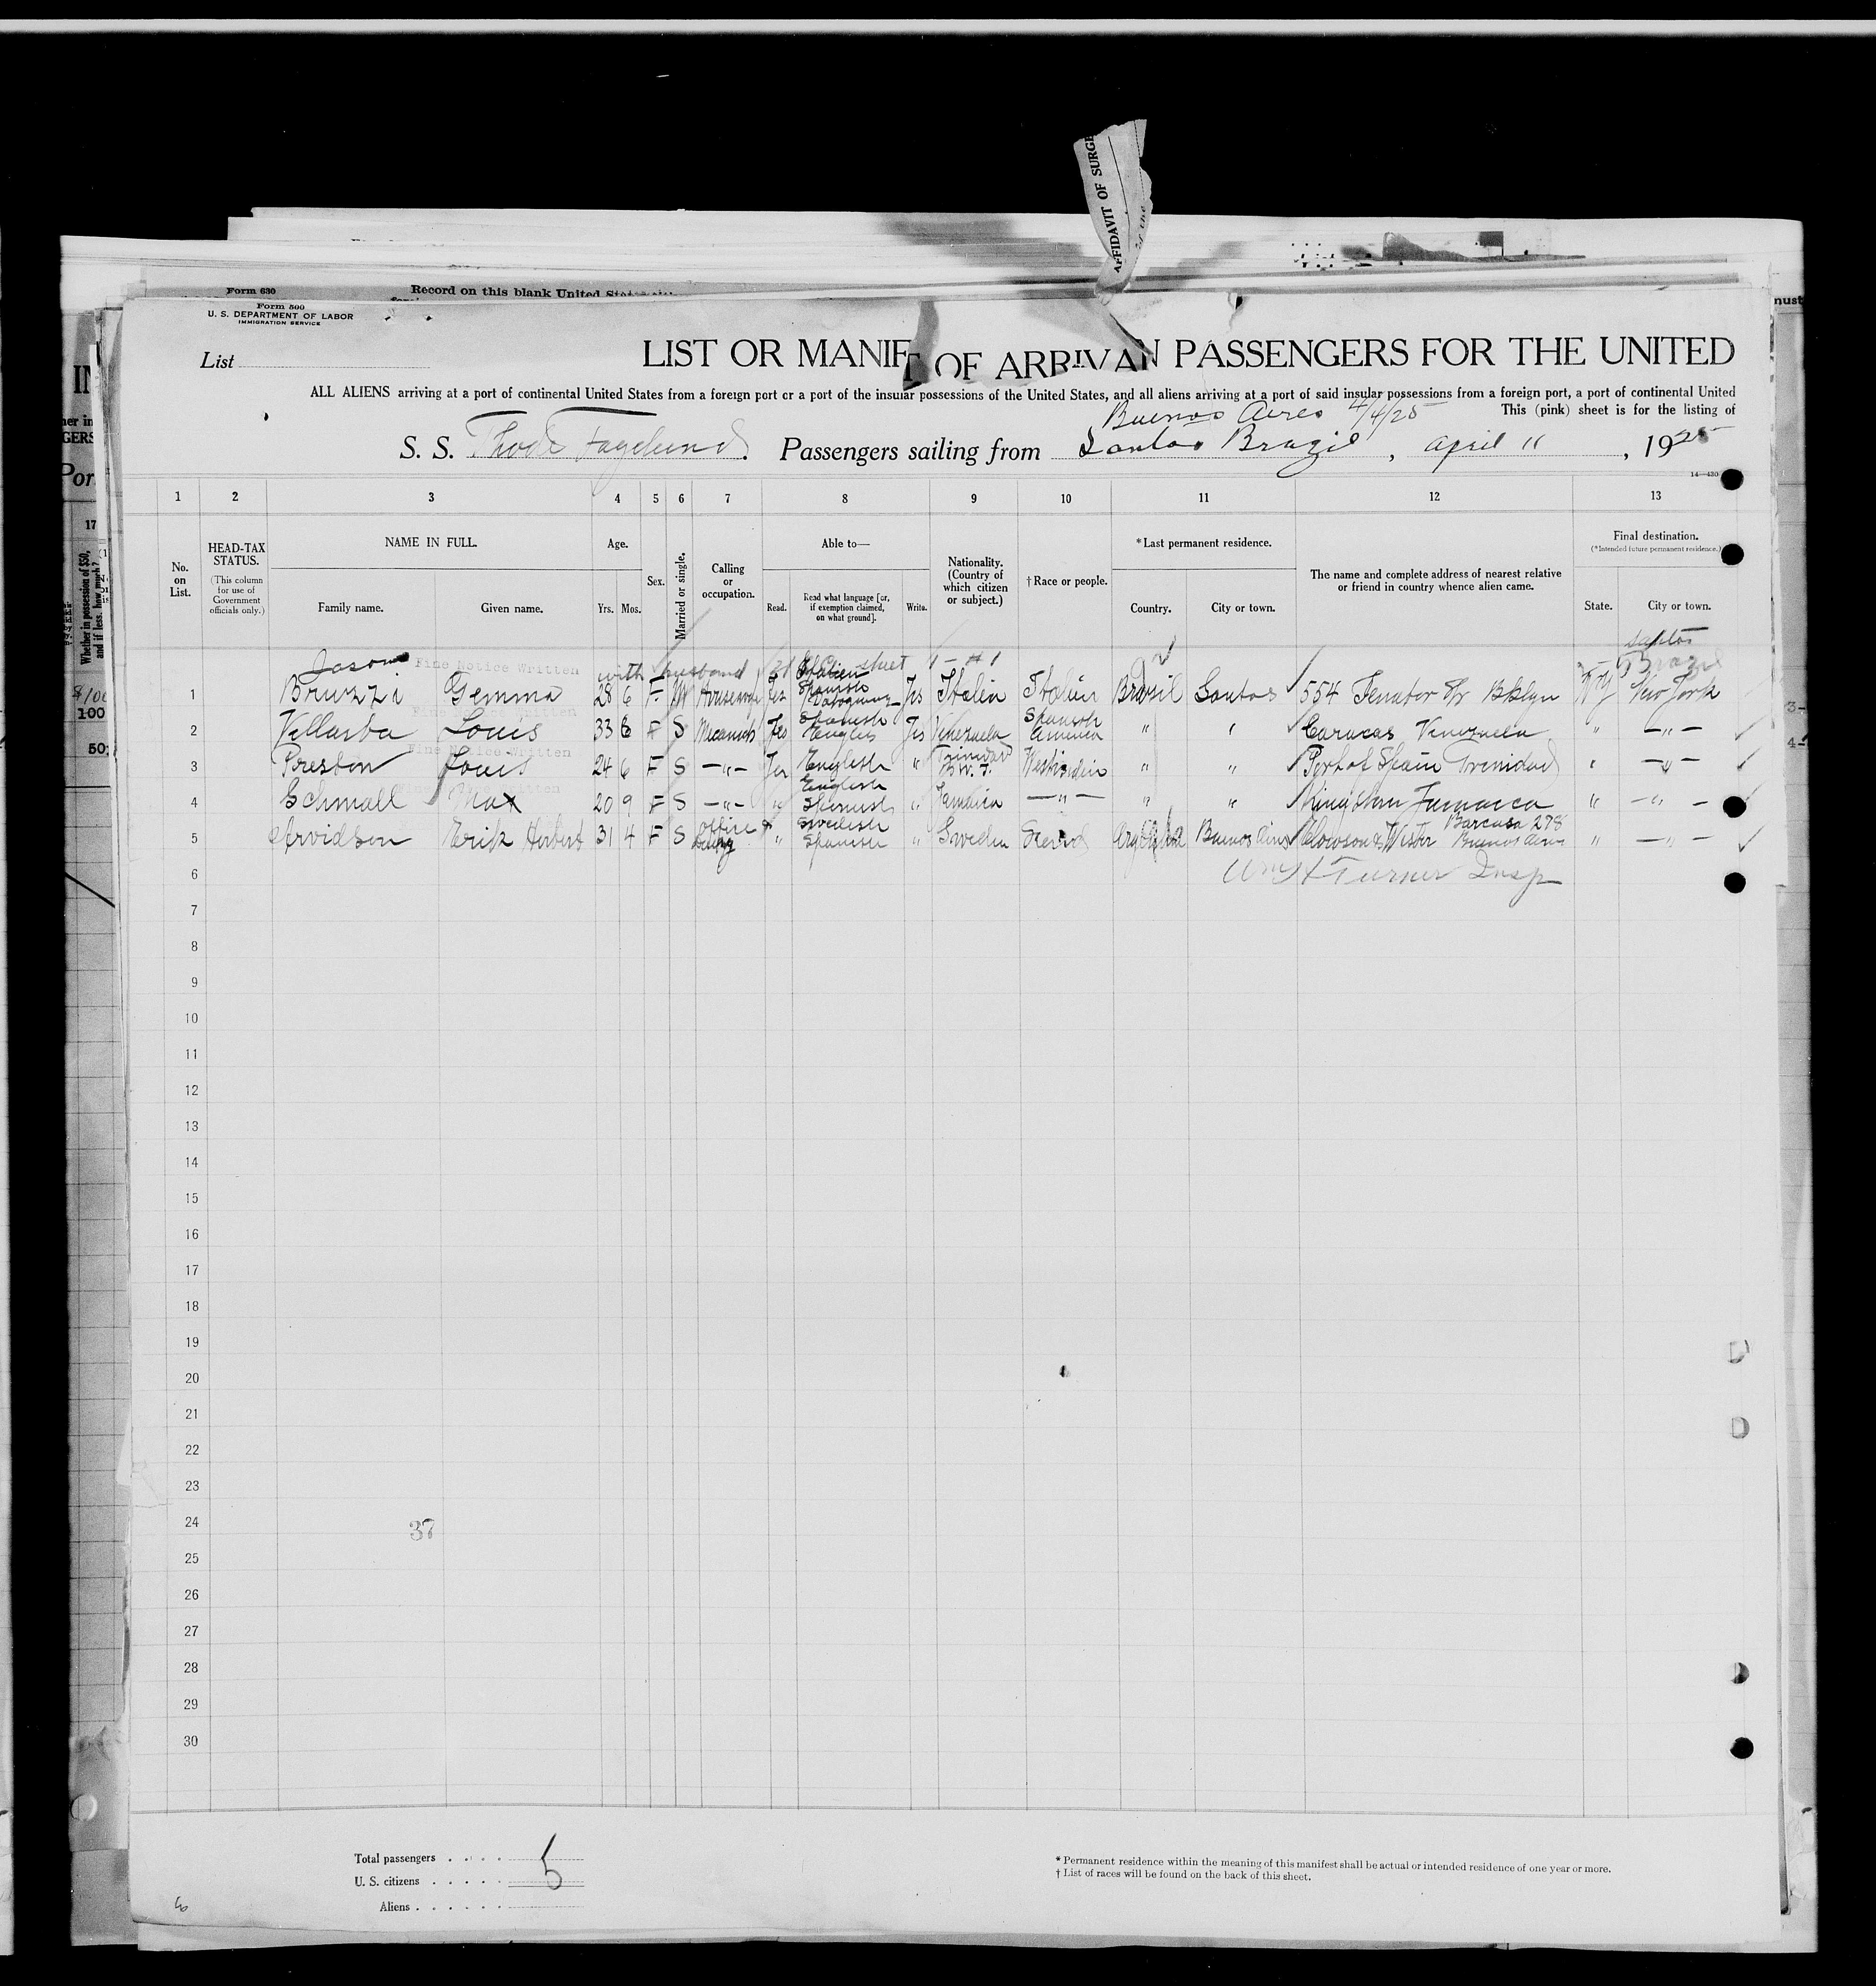 AFFIDAVIT OF SURGE
Form 630
Record on this blank United
Form 500
U. S. DEPARTMENT OF LABOR
IMMIGRATION SERVICE
List
LIST OR MANIF T OF ARRIVA N PASSENGERS FOR THE UNITED
ALL ALIENS arriving at a port of continental United States from a foreign port or a port of the insular possessions of the United States, and all aliens arriving at a port of said insular possessions from a foreign port, a port of continental United
Buenos Aires 4/4/25
This (pink) sheet is for the listing of
S. S. Thode Fagelund. Passengers sailing from Santos Brazil, April 11, 1925
14—430
1 2 3 4 5 6 7 8 9 10 11 12 13
No. on List.
HEAD-TAX STATUS.
(This column for use of Government officials only.)
NAME IN FULL.
Family name.
Given name.
Age.
Yrs. Mos.
Sex.
Married or single.
Calling or occupation.
Able to—
Read.
Read what language [or, if exemption claimed, on what ground].
Write.
Nationality. (Country of which citizen or subject.)
† Race or people.
* Last permanent residence.
Country.
City or town.
The name and complete address of nearest relative or friend in country whence alien came.
Final destination.
(*Intended future permanent residence.)
State.
City or town.
Santos
Brazil
Jason Fine Notice Written with husband street
1 Bruzzi Gemma 28 6 F M Housewife Yes Italien Spanish Yes Italia Italien Brasil Santos 554 Senator Str Bklyn NY New York
2 Villasba Louis 33 6 F S Mecanich Yes Spanish Engles Yes Venezuela Spanish America " " Caracas Venezuela " —"—
Fine Notice Written
3 Preston Louis 24 6 F S —"— Yes English " Trinidad B.W.I. Westindien " " Port of Spain Trinidad " —"—
4 Schmall Max 20 9 F S —"— " English Spanish " Jamaica —"— " " Kingston Jamaica " —"—
5 Arvidson Erik Herbert 31 4 F S office " Swedish Spanish " Sweden Argentina Buenos Aires Barcasa 278 Buenos Aires " —"—
6 Turner Insp
7
8
9
10
11
12
13
14
15
16
17
18
19
20
21
22
23
24
37
25
26
27
28
29
30
Total passengers . . . . 5
U. S. citizens . . . . .
Aliens . . . . . .
* Permanent residence within the meaning of this manifest shall be actual or intended residence of one year or more.
† List of races will be found on the back of this sheet.